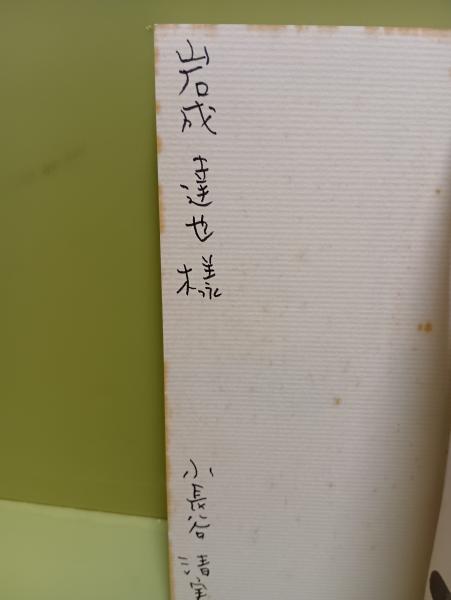 岩成 達也 様
小長谷 清実